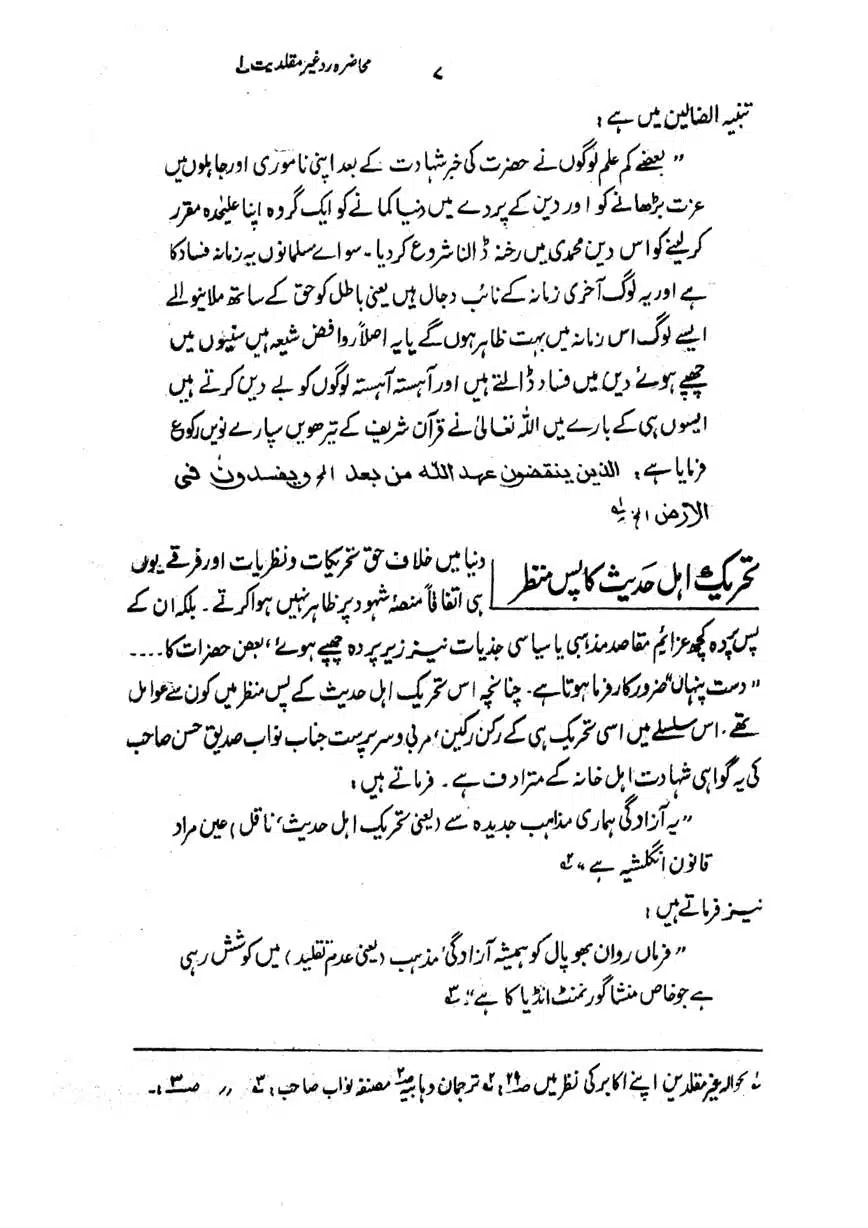 ۷ محاضرہ رد غیر مقلدیت ۱
تنبیہ الضالین میں ہے :
” بعضے کم علم لوگوں نے حضرت کی خبر شہادت کے بعد اپنی ناموری اور جاہلوں میں
عزت بڑھانے کو اور دین کے پردے میں دنیا کمانے کو ایک گروہ اپنا علیحدہ مقرر
کر لینے کو اس دین محمدی میں رخنہ ڈالنا شروع کر دیا ۔ سو اے مسلمانوں یہ زمانہ فساد کا
ہے اور یہ لوگ آخری زمانہ کے نائب دجال ہیں یعنی باطل کو حق کے ساتھ ملانیوالے
ایسے لوگ اس زمانہ میں بہت ظاہر ہوں گے یا یہ اصلاً روافض شیعہ ہیں سنیوں میں
چھپے ہوئے دین میں فساد ڈالتے ہیں اور آہستہ آہستہ لوگوں کو بے دین کرتے ہیں
ایسوں ہی کے بارے میں اللہ تعالیٰ نے قرآن شریف کے تیرھویں سپارے نویں رکوع
فرمایا ہے ؛ الذین ینقضون عہد اللہ من بعد الخ ویفسدون فی
الارض الخ ۱؎
تحریک اہل حدیث کا پس منظر دنیا میں خلاف حق تحریکات و نظریات اور فرقے یوں
ہی اتفاقاً منصۂ شہود پر ظاہر نہیں ہوا کرتے ۔ بلکہ ان کے
پس پردہ کچھ عزائم مقاصد مذہبی یا سیاسی جذبات نیز زیر پردہ چھپے ہوئے ، بعض حضرات کا ....
” دست پنہاں “ ضرور کار فرما ہوتا ہے ۔ چنانچہ اس تحریک اہل حدیث کے پس منظر میں کون سے عوامل
تھے ، اس سلسلے میں اسی تحریک ہی کے رکن رکین ، مربی و سرپرست جناب نواب صدیق حسن صاحب
کی یہ گواہی شہادت اہل خانہ کے مترادف ہے ۔ فرماتے ہیں :
” یہ آزادگی ہماری مذاہب جدیدہ سے (یعنی تحریک اہل حدیث ، ناقل) عین مراد
قانون انگلشیہ ہے “ ۲؎
نیز فرماتے ہیں :
” فرماں روان بھوپال کو ہمیشہ آزادگیٔ مذہب (یعنی عدم تقلید) میں کوشش رہی
ہے جو خاص منشا گورنمنٹ انڈیا کا ہے “ ۳؎
۱؎ بحوالہ غیر مقلدین اپنے اکابر کی نظر میں صـ ۲۹ ؛ ۲؎ ترجمان وہابیہ صـ ۲ مصنفہ نواب صاحب ؛ ۳؎ 〃 صـ ۳ ؛ ۔